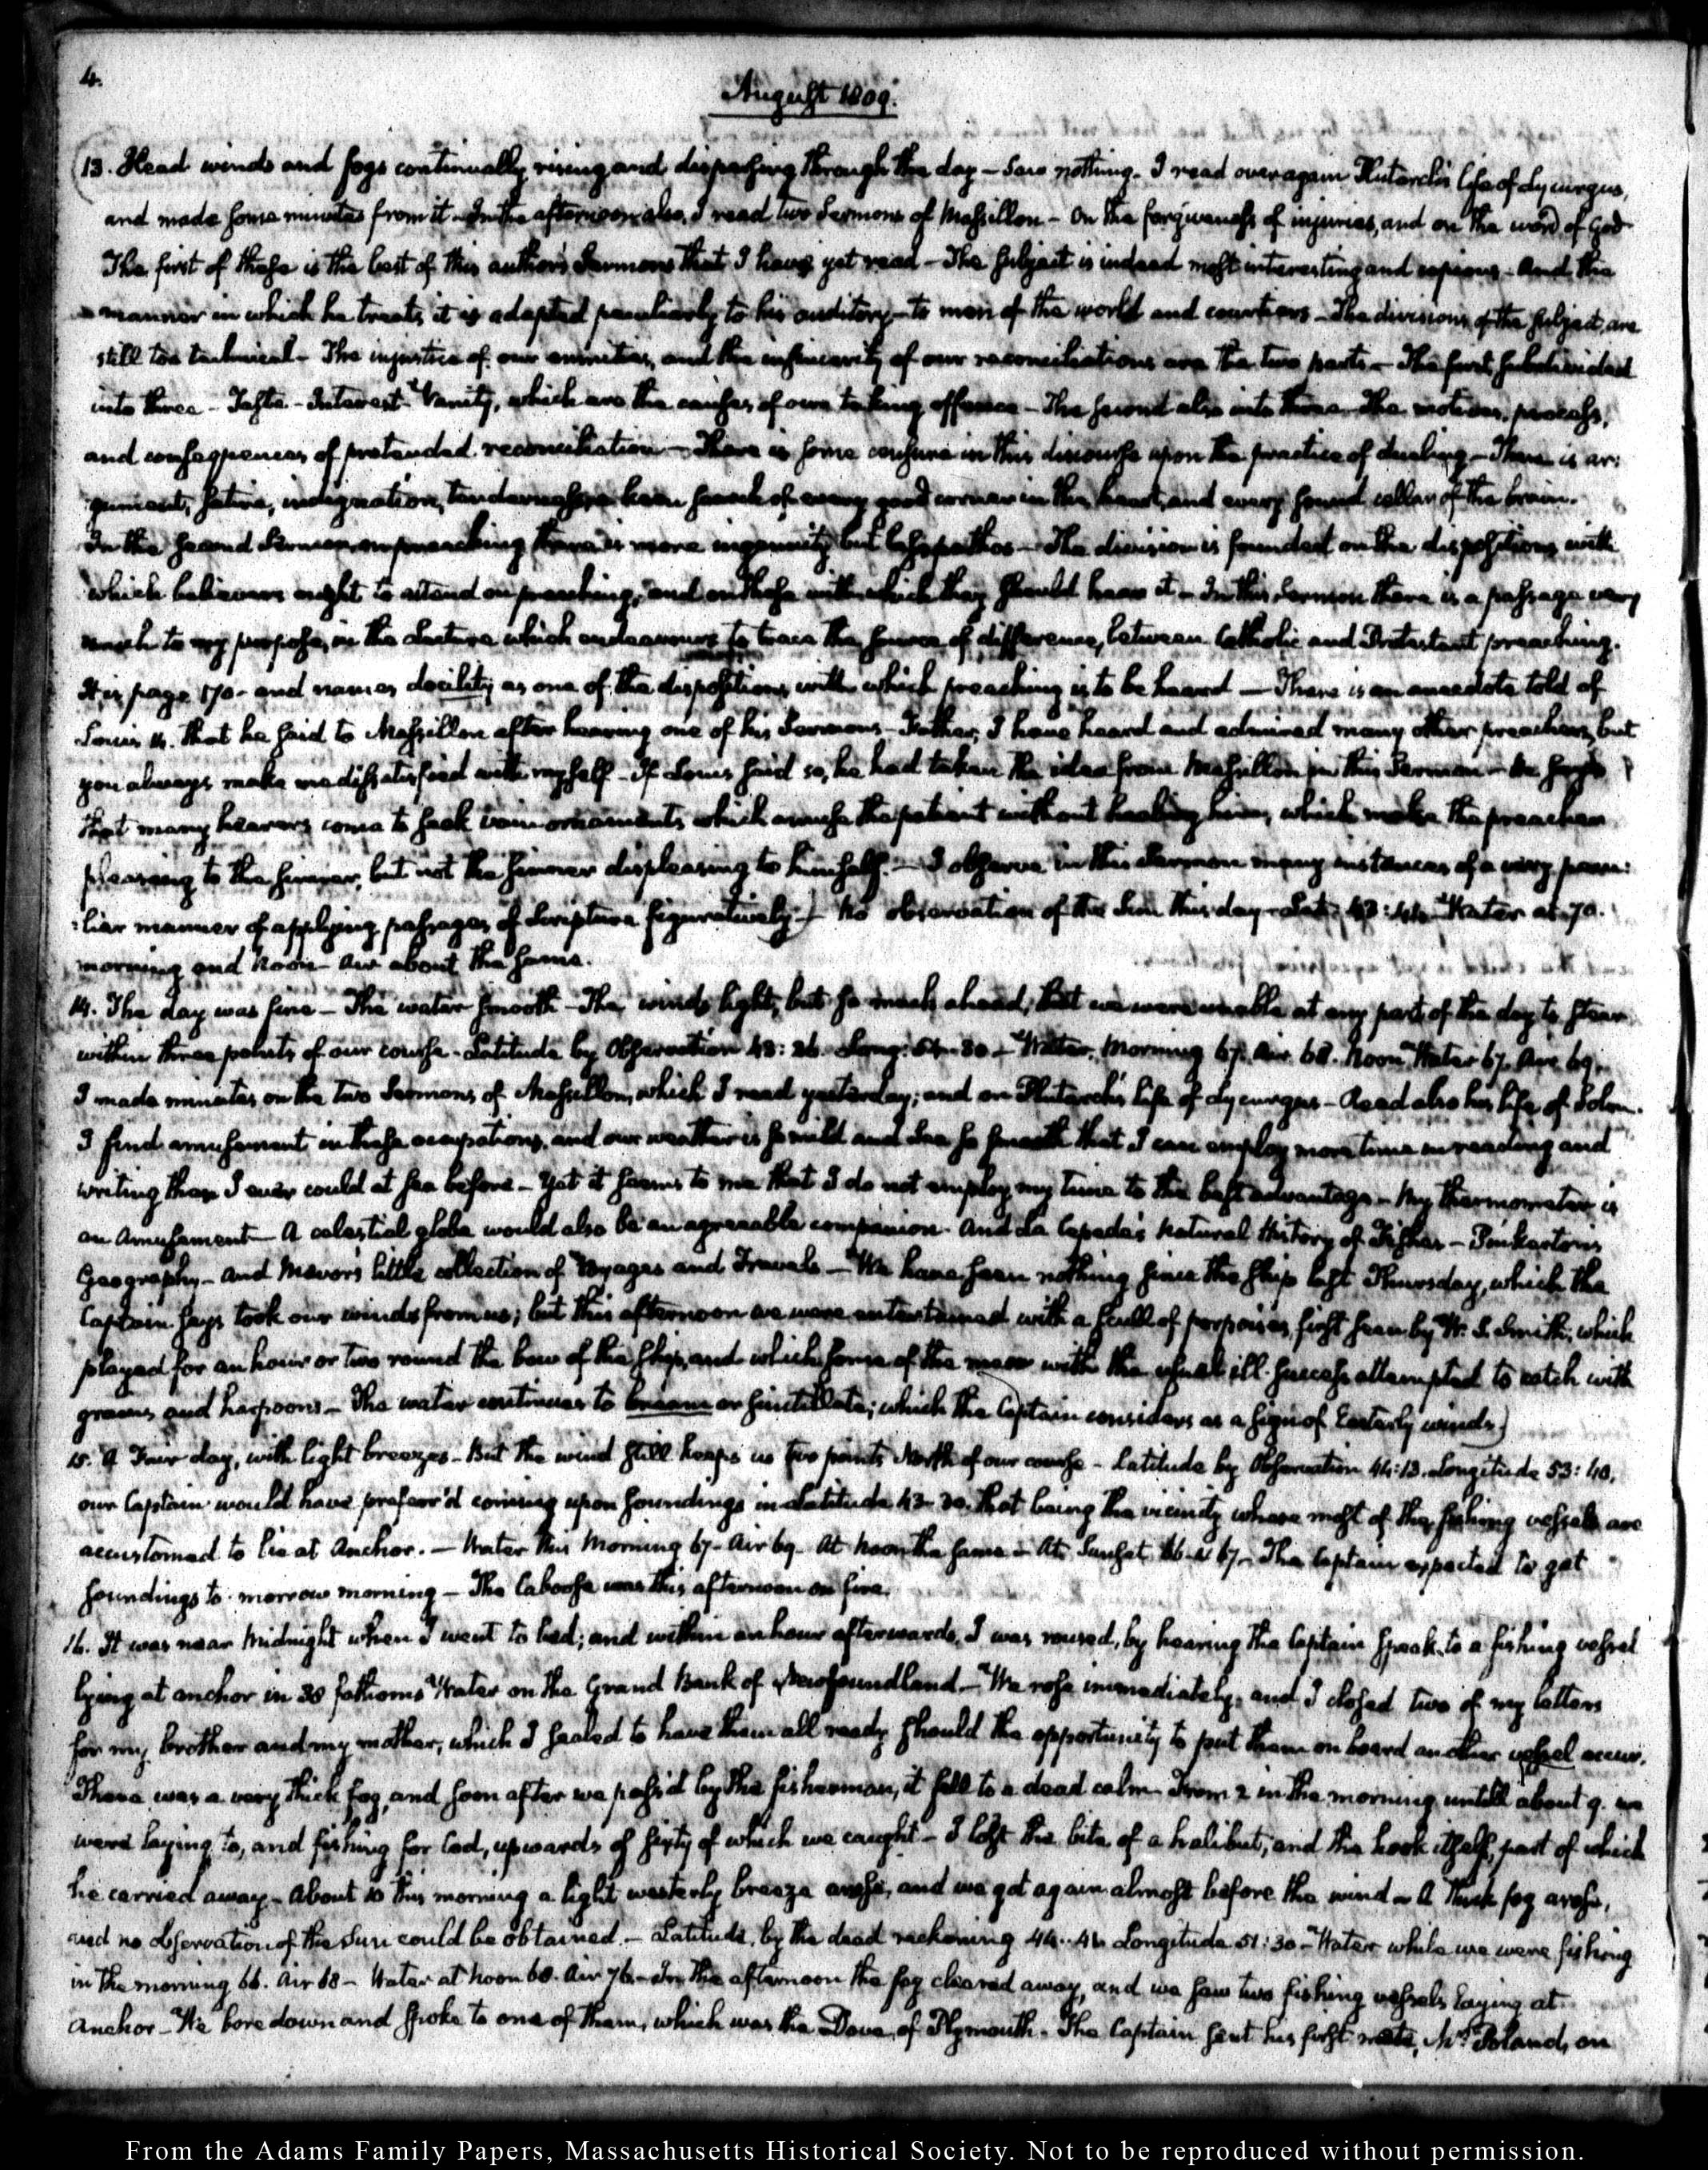 4.
August 1809.
13. Head winds and fogs continually rising and dispersing through the day – Saw nothing. I read over again Plutarch's life of Lycurgus,
and made some minutes from it – In the afternoon also, I read two Sermons of Massillon – On the forgiveness of injuries, and on the word of God
The first of these is the best of this author's Sermons that I have yet read – The subject is indeed most interesting and copious – And the
manner in which he treats it is adapted peculiarly to his auditory – to men of the world and courtiers – The divisions of the subject, are
still too technical – The injustice of our enmities, and the insincerity of our reconciliations are the two parts – The first, subdivided
into three – Taste – Interest – Vanity, which are the causes of our taking offence – The second also into three – The motives, process,
and consequences of pretended reconciliation – There is some censure in this discourse upon the practice of duelling – There is ar:
gument, satire, indignation, tenderness, a keen search of every good corner in the heart, and every sound cellar of the brain.
In the second Sermon, on preaching there is more ingenuity but less pathos – The division is founded on the dispositions with
which believers ought to attend on preaching, and on those with which they should hear it – In this Sermon there is a passage very
much to my purpose, in the Lecture which endeavours to trace the source of difference, between Catholic and Protestant preaching.
It is page 170 – and names docility as one of the dispositions with which preaching is to be heard – There is an anecdote told of
Louis 14. that he said to Massillon after hearing one of his Sermons – Father, I have heard and admired many other preachers, but
you always make me dissatisfied with myself – If Louis said so, he had taken the idea from Massillon in this Sermon – He says
that many hearers come to seek vain ornaments which amuse the patient without healing him, which make the preacher
pleasing to the sinner, but not the sinner displeasing to himself. – I observe in this Sermon many instances of a very pecu:
:liar manner of applying passages of Scripture figuratively.) No observation of the Sun this day – Lat: 43:44. Water at 70.
morning and Noon – Air about the same.
14. The day was fine – The water smooth – The winds light, but so much ahead, that we were unable at any part of the day to steer
within three points of our course – Latitude by Observation 43:26. Long: 54–30 – Water, Morning 67. Air 68. Noon Water 67. Air 69.
I made minutes on the two Sermons of Massillon, which I read yesterday; and on Plutarch's life of Lycurgus – Read also his life of Solon.
I find amusement in these occupations, and our weather is so mild and sea so smooth that I can employ more time in reading and
writing than I ever could at sea before – Yet it seems to me that I do not employ my time to the best advantage – My thermometer is
an Amusement – A celestial globe would also be an agreeable companion. And La Cepede's Natural History of Fishes – Pinkerton's
Geography – And Mavor's little collection of Voyages and Travels – We have seen nothing since the ship last Thursday, which the
Captain says took our winds from us; but this afternoon we were entertained with a scull of porpoises, first seen by W. S. Smith, which
played for an hour or two round the bow of the ship, and which some of the men with the usual ill-success attempted to catch with
grains and harpoons – The water continues to briam or scintillate; which the Captain considers as a sign of Easterly winds.)
15. A Fair day, with light breezes – But the wind still keeps us two points North of our course – Latitude by Observation 44:13. Longitude 53:40.
our Captain would have preferr'd coming upon soundings in Latitude 43–30. that being the vicinity where most of the fishing vessels are
accustomed to lie at Anchor. – Water this Morning 67 – Air 69 – At Noon the same – At Sunset 66 & 67 – The Captain expected to get
soundings to-morrow morning – The Caboose was this afternoon on fire.
16. It was near Midnight when I went to bed; and within an hour afterwards, I was roused, by hearing the Captain speak to a fishing vessel
lying at anchor in 38 fathoms Water on the Grand Bank of Newfoundland – We rose immediately, and I closed two of my letters
for my brother and my mother, which I sealed to have them all ready should the opportunity to put them on board another vessel occur.
There was a very thick fog, and soon after we pass'd by the fisherman, it fell to a dead calm – From 2 in the morning untill about 9. we
were laying to, and fishing for Cod, upwards of sixty of which we caught – I lost the bite of a halibut, and the hook itself, part of which
he carried away – About 10 this morning a light westerly breeze arose, and we got again almost before the wind – A thick fog arose,
and no observation of the Sun could be obtained. – Latitude, by the dead reckoning 44..41 Longitude 51:30 – Water while we were fishing
in the morning 66. Air 68 – Water at Noon 60. Air 76 – In the afternoon the fog cleared away, and we saw two fishing vessels laying at
Anchor – We bore down and spoke to one of them, which was the Dove, of Plymouth. The Captain sent his first mate, Mr. Poland, on
From the Adams Family Papers, Massachusetts Historical Society. Not to be reproduced without permission.